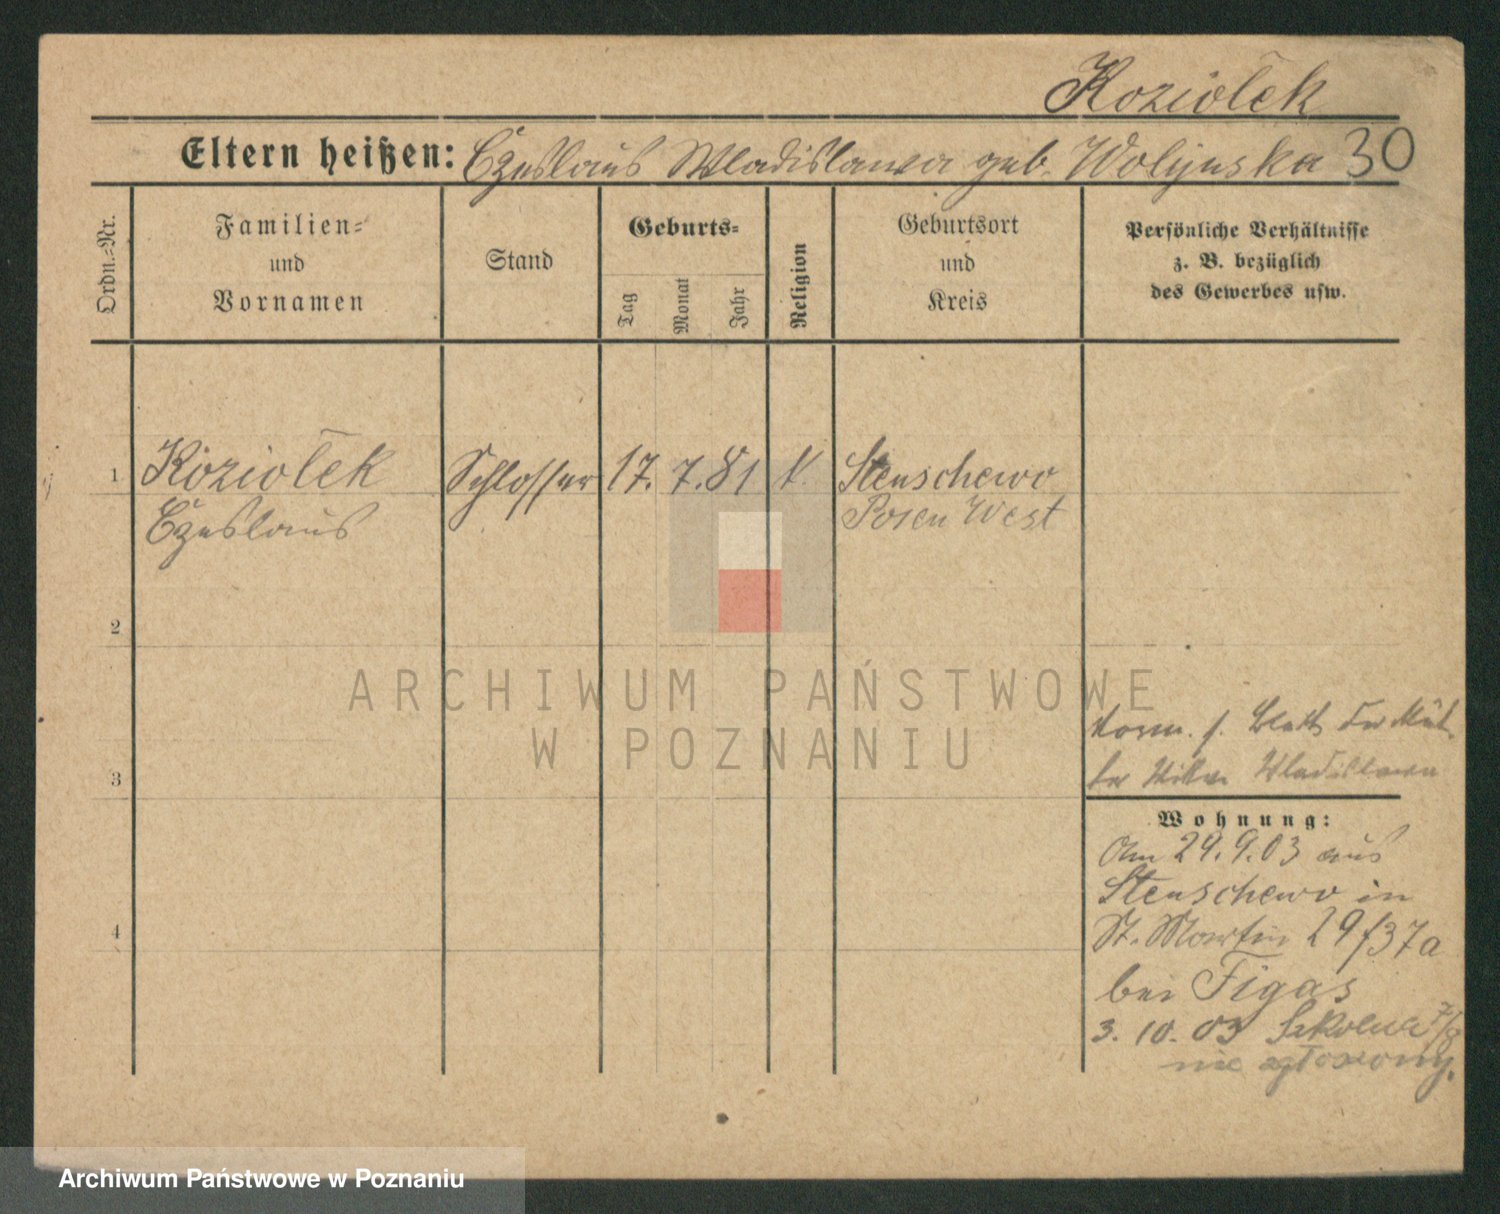 Koziołek
Eltern heißen: Czeslaus Wladislawa geb. Wolynska 30
Ordn.-Nr.
Familien-
und
Vornamen
Stand
Geburts-
Tag
Monat
Jahr
Religion
Geburtsort
und
Kreis
Persönliche Verhältnisse
z. B. bezüglich
des Gewerbes usw.
1 Koziołek Schlosser 17. 7. 81 k. Stenschewo
Czeslaus Posen West
2
3
4
Vorm. s. Blatt der Mut-
ter Wladislawa
Wohnung:
Am 29. 9. 03 aus
Stenschewo in
St. Martin 29/37a
bei Figas
3. 10. 03 Szkolna 7/8
nie zgłoszony.
ARCHIWUM PAŃSTWOWE
W POZNANIU
Archiwum Państwowe w Poznaniu